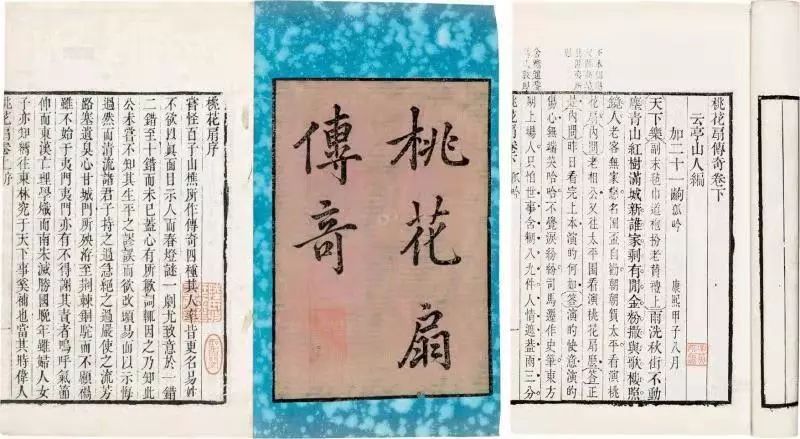 桃花扇序
嘗怪百子山樵所作傳奇四種其人率皆更名易姓
不欲以眞面目示人而春燈謎一劇尤致意於一錯
二錯至十錯而未已蓋心有所歉詞輒因之乃知此
公未嘗不知其生平之謬誤而欲改頭易面以示悔
過然而清流諸君子持之過急絕之過嚴使之流芳
路塞遺臭心甘城門所殃洊至荆棘銅駝而不顧禍
雖不始于夷門夷門亦有不得謝其責者嗚呼氣節
伸而東漢亡理學熾而南宋滅勝國晚年雖婦人女
子亦知嚮往東林究于天下事奚補也當其時偉人
桃花扇卷上序
桃花扇
傳奇
桃花扇傳奇卷下
云亭山人編
加二十一齣 孤吟 康熙甲子八月
天下樂副末氊巾道袍扮老贊禮上雨洗秋街不動
塵青山紅樹滿城新誰家剩有閒金粉撒與歌樓照
鏡人老客無家戀名園盃自勸朝朝賀太平看演桃
花扇內問老相公又往太平園看演桃花扇麽答正
是內問昨日看完上本演的何如答演的快意演的
傷心無端笑哈哈不覺淚紛紛司馬遷作史筆東方
朔上場人只怕世事含糊八九件人情遮蓋兩三分
桃花扇卷下 孤吟